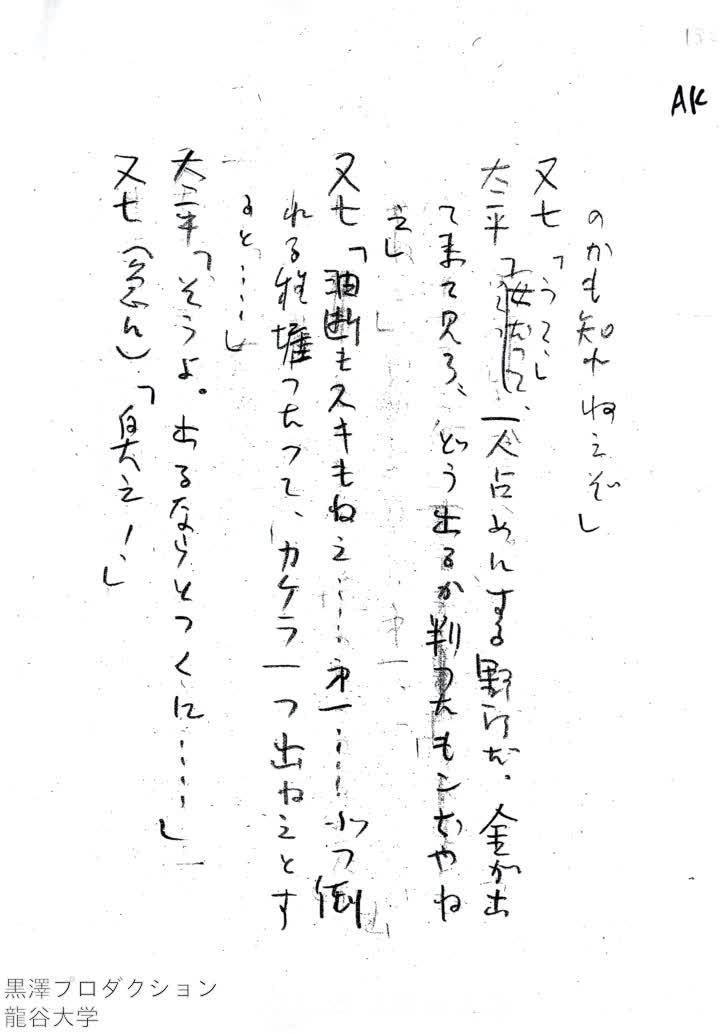 AK
のかも知れねえぞ」
又七「うむ」
太平「女だって、一人占めにする野郎だ、金が出
て来て見ろ、どう出るか判ったもンぢやね
え」
又七「油断もスキもねえ……第一……ぶっ倒
れる程掘ったって、カケラ一つ出ねえとす
ると……」
太平「そうよ。出るならとっくに……」
又七(急に)「臭え!」
黒澤プロダクション
龍谷大学